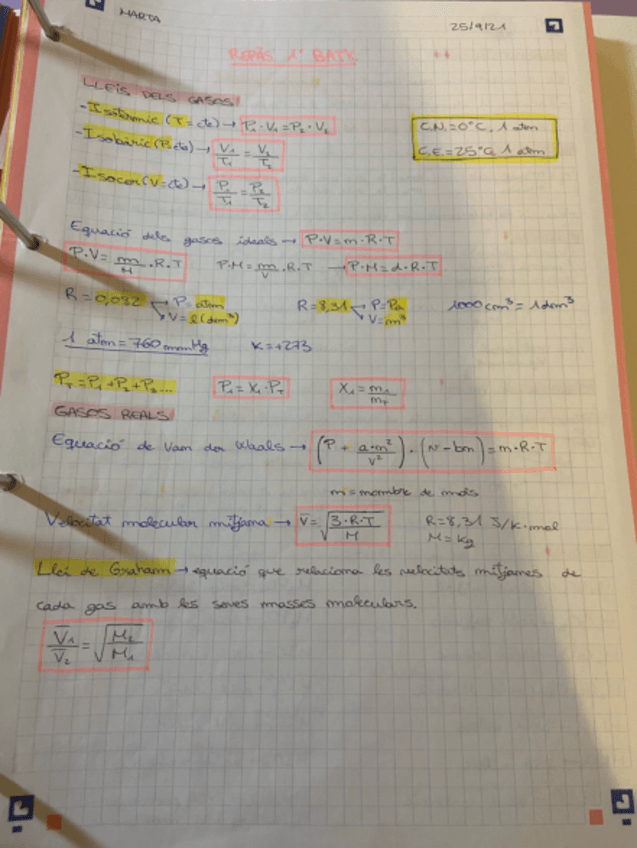 MARTA
25/9/21
REPÀS 1º BATX
LLEIS DELS GASOS:
-Isotèrmic (T=cte) → P₁·V₁=P₂·V₂
C.N.=0°C, 1 atm
-Isobàric (P=cte) → V₁/T₁ = V₂/T₂
C.E.=25°C, 1 atm
-Isocor (V=cte) → P₁/T₁ = P₂/T₂
Equació dels gasos ideals → P·V=n·R·T
P·V= m/M ·R·T P·M= m/V ·R·T → P·M=d·R·T
R=0,082 P=atm V=l(dm³) R=8,31 P=Pa V=m³ 1000cm³=1dm³
1 atm=760mmHg K=+273
P_T=P₁+P₂+P₃... P₁=X₁·P_T X₁=n₁/n_T
GASOS REALS
Equació de Van der Waals → (P + a·n²/V²)·(V-bn)=n·R·T
n=nombre de mols
Velocitat molecular mitjana → V̄=√(3·R·T/M) R=8,31 J/K·mol
M=Kg
Llei de Graham → equació que relaciona les velocitats mitjanes de
cada gas amb les seves masses moleculars.
V̄₁/V̄₂ = √(M₂/M₁)